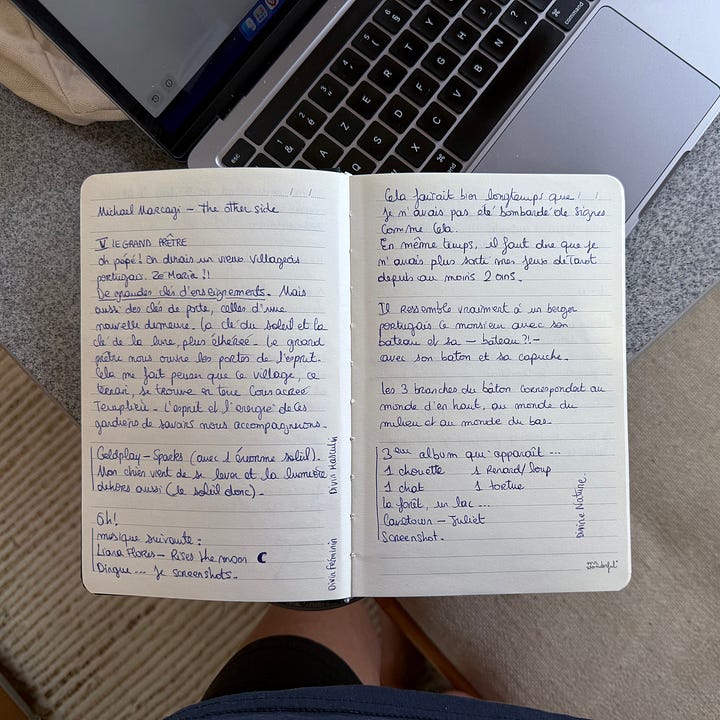 Michael Marcagi – The other side
V LE GRAND PRÊTRE
Oh pépé ! On dirait un vieux villageois
portugais. Zé Maria !!
De grandes clés d'enseignements. Mais
aussi des clés de porte, celles d'une
nouvelle demeure. La clé du soleil et la
clé de la lune, plus éthérée. Le grand
prêtre nous ouvre les portes de l'esprit.
Cela me fait penser que ce village, ce
terrain, se trouve en terre consacrée
Templière. L'esprit et l'énergie de ces
gardiens de savoirs nous accompagnerons.
Coldplay – Sparks (avec 1 énorme soleil).
Mon chien vient de se lever et la lumière
dehors aussi (le soleil donc).
Divin Masculin
Oh!
musique suivante :
Liana Flores – Rises the moon
Dingue ... Je screenshots.
Divin Féminin
Cela faisait bien longtemps que
je n'avais pas été bombardé de signes
comme cela.
En même temps, il faut dire que je
n'avais plus sorti mes jeux de Tarot
depuis au moins 2 ans.
Il ressemble vraiment à un berger
portugais ce monsieur avec son
bateau et sa – bateau ?! –
avec son baton et sa capuche.
les 3 branches du bâton correspondent au
monde d'en haut, au monde du
milieu et au monde du bas.
3ème album qui apparaît ...
1 chouette 1 Renard/loup
1 chat 1 tortue
La forêt, un lac ...
Cavetown – Juliet
Screenshot.
Divine Nature.
mr. wonderful
esc
command
command
& 1
é 2
" 3
' 4
( 5
§ 6
A
Z
E
R
T
Y
Q
S
D
F
G
H
J
W
X
C
V
B
N
? ,